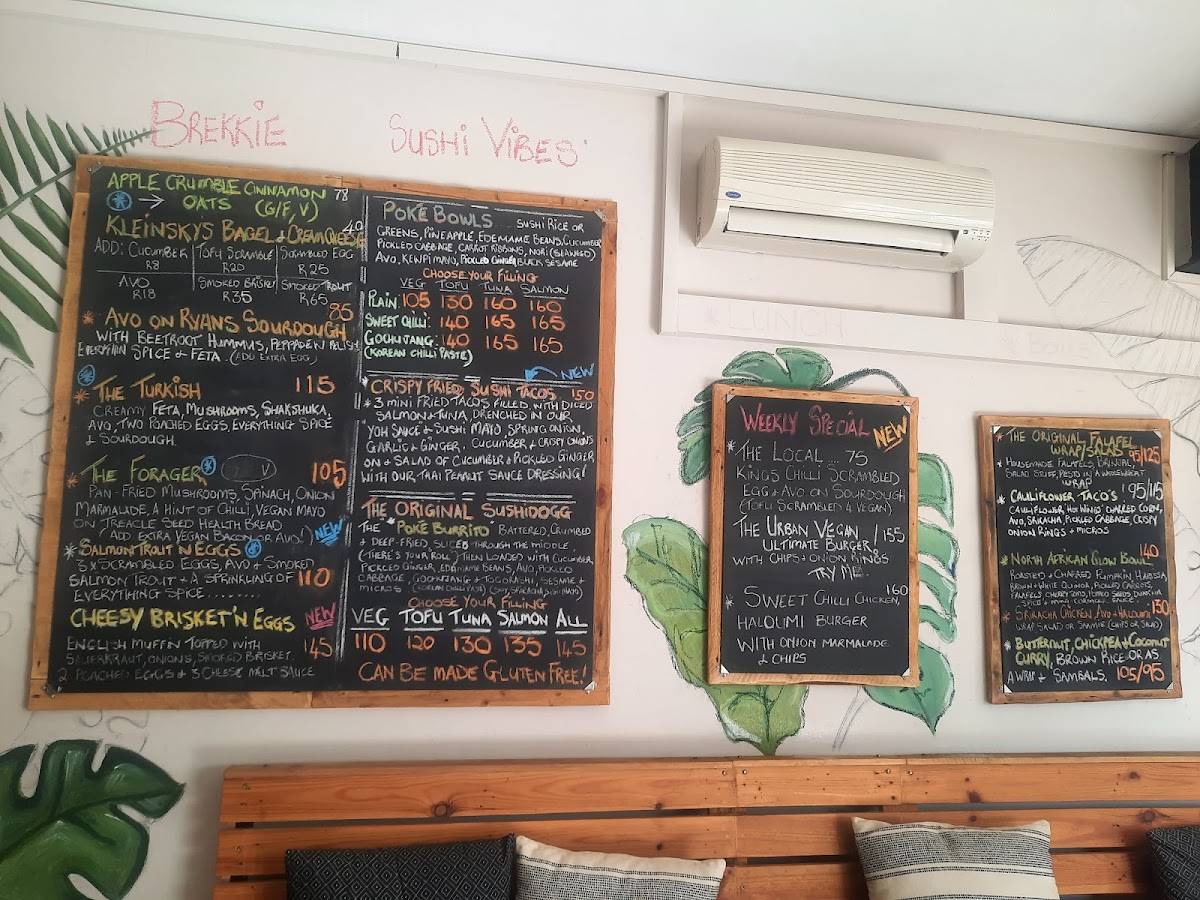 BREKKIE
SUSHI VIBES
APPLE CRUMBLE CINNAMON 78
OATS (G/F, V)
KLEINSKY'S BAGEL & CREAM CHEESE 40
ADD: CUCUMBER R8
TOFU SCRAMBLE R20
SCRAMBLED EGG R25
AVO R18
SMOKED BRISKET R35
SMOKED TROUT R65
AVO ON RYANS SOURDOUGH 85
WITH BEETROOT HUMMUS, PEPPADEW RELISH
EVERYTHIN SPICE & FETA. (ADD EXTRA EGG)
THE TURKISH 115
CREAMY FETA, MUSHROOMS, SHAKSHUKA,
AVO, TWO POACHED EGGS, EVERYTHING SPICE
& SOURDOUGH.
THE FORAGER V 105
PAN-FRIED MUSHROOMS, SPINACH, ONION
MARMALADE, A HINT OF CHILLI, VEGAN MAYO
ON TREACLE SEED HEALTH BREAD
ADD EXTRA VEGAN BACON OR AVO!) NEW
SALMON TROUT N EGGS
3X SCRAMBLED EGGS, AVO & SMOKED
SALMON TROUT + A SPRINKLING OF 110
EVERYTHING SPICE........
CHEESY BRISKET'N EGGS NEW
ENGLISH MUFFIN TOPPED WITH 145
SAUERKRAUT, ONIONS, SMOKED BRISKET
2 POACHED EGGS & 3 CHEESE MELT SAUCE
POKÉ BOWLS.... SUSHI RICE OR
GREENS, PINEAPPLE, EDEMAME BEANS, CUCUMBER
PICKLED CABBAGE, CARROT RIBBONS, NORI (SEAWEED)
AVO, KEWPI MAYO, PICKLED GINGER, BLACK SESAME
CHOOSE YOUR FILLING
VEG TOFU TUNA SALMON
PLAIN: 105 130 160 160
SWEET CHILLI: 140 165 165
GOCHUJANG: 140 165 165
(KOREAN CHILLI PASTE)
NEW
CRISPY FRIED SUSHI TACOS 150
3 MINI FRIED TACOS FILLED WITH DICED
SALMON & TUNA, DRENCHED IN OUR
YOH SAUCE & SUSHI MAYO, SPRING ONION,
GARLIC & GINGER. CUCUMBER & CRISPY ONIONS
ON A SALAD OF CUCUMBER & PICKLED GINGER
WITH OUR THAI PEANUT SAUCE DRESSING!
THE ORIGINAL SUSHIDOGG
THE "POKÉ BURRITO" BATTERED, CRUMBED
& DEEP-FRIED, SLICED THROUGH THE MIDDLE
(THERE'S YOUR ROLL) THEN LOADED WITH CUCUMBER,
PICKLED GINGER, EDEMAME BEANS, AVO, PICKLED
CABBAGE, GOCHUJANG & TOGORASHI, SESAME &
MICROS (KOREAN CHILLI PASTE)
CHOOSE YOUR FILLING
VEG TOFU TUNA SALMON ALL
110 120 130 135 145
CAN BE MADE GLUTEN FREE!
LUNCH
WEEKLY SPECIAL NEW
THE LOCAL .... 75
KINGS CHILLI SCRAMBLED
EGG & AVO ON SOURDOUGH
(TOFU SCRAMBLE 4 VEGAN)
THE URBAN VEGAN 155
ULTIMATE BURGER
WITH CHIPS & ONION RINGS
TRY ME
SWEET CHILLI CHICKEN, 160
HALOUMI BURGER
WITH ONION MARMALADE
& CHIPS
THE ORIGINAL FALAFEL
WRAP/SALAD 95/125
HOUSEMADE FALAFELS, BRINJAL,
SALAD STUFF, PESTO IN A WHOLEWHEAT
WRAP
CAULIFLOWER TACO'S 95/115
CAULIFLOWER HOT WINGS CHARRED CORN,
AVO, SRIRACHA PICKLED CABBAGE, CRISPY
ONION RINGS & MICROS
NORTH AFRICAN GLOW BOWL 140
ROASTED & CHARRED PUMPKIN, HARISSA,
BROWN & WHITE QUINOA, PICKLED CARROTS
FALAFELS
SRIRACHA CHICKEN, AVO & HALOUMI 130
WRAP, SALAD OR SARMIE (CHIPS OR SALAD)
BUTTERNUT, CHICKPEA & COCONUT
CURRY, BROWN RICE OR AS
A WRAP & SAMBALS. 105/95